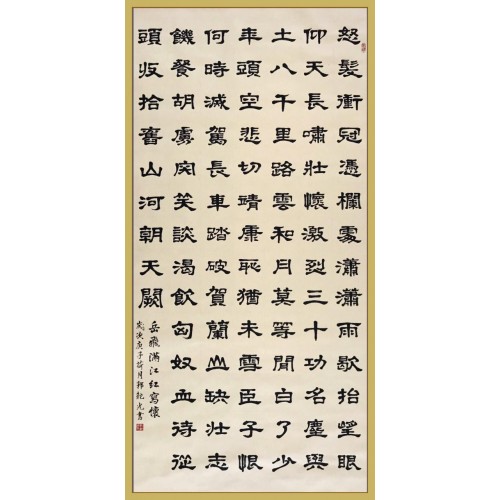 怒髮衝冠憑欄處瀟瀟雨歇抬望眼
仰天長嘯壯懷激烈三十功名塵與
土八千里路雲和月莫等閒白了少
年頭空悲切靖康恥猶未雪臣子恨
何時滅駕長車踏破賀蘭山缺壯志
饑餐胡虜肉笑談渴飲匈奴血待從
頭收拾舊山河朝天闕
岳飛滿江紅寫懷
歲次庚子荷月